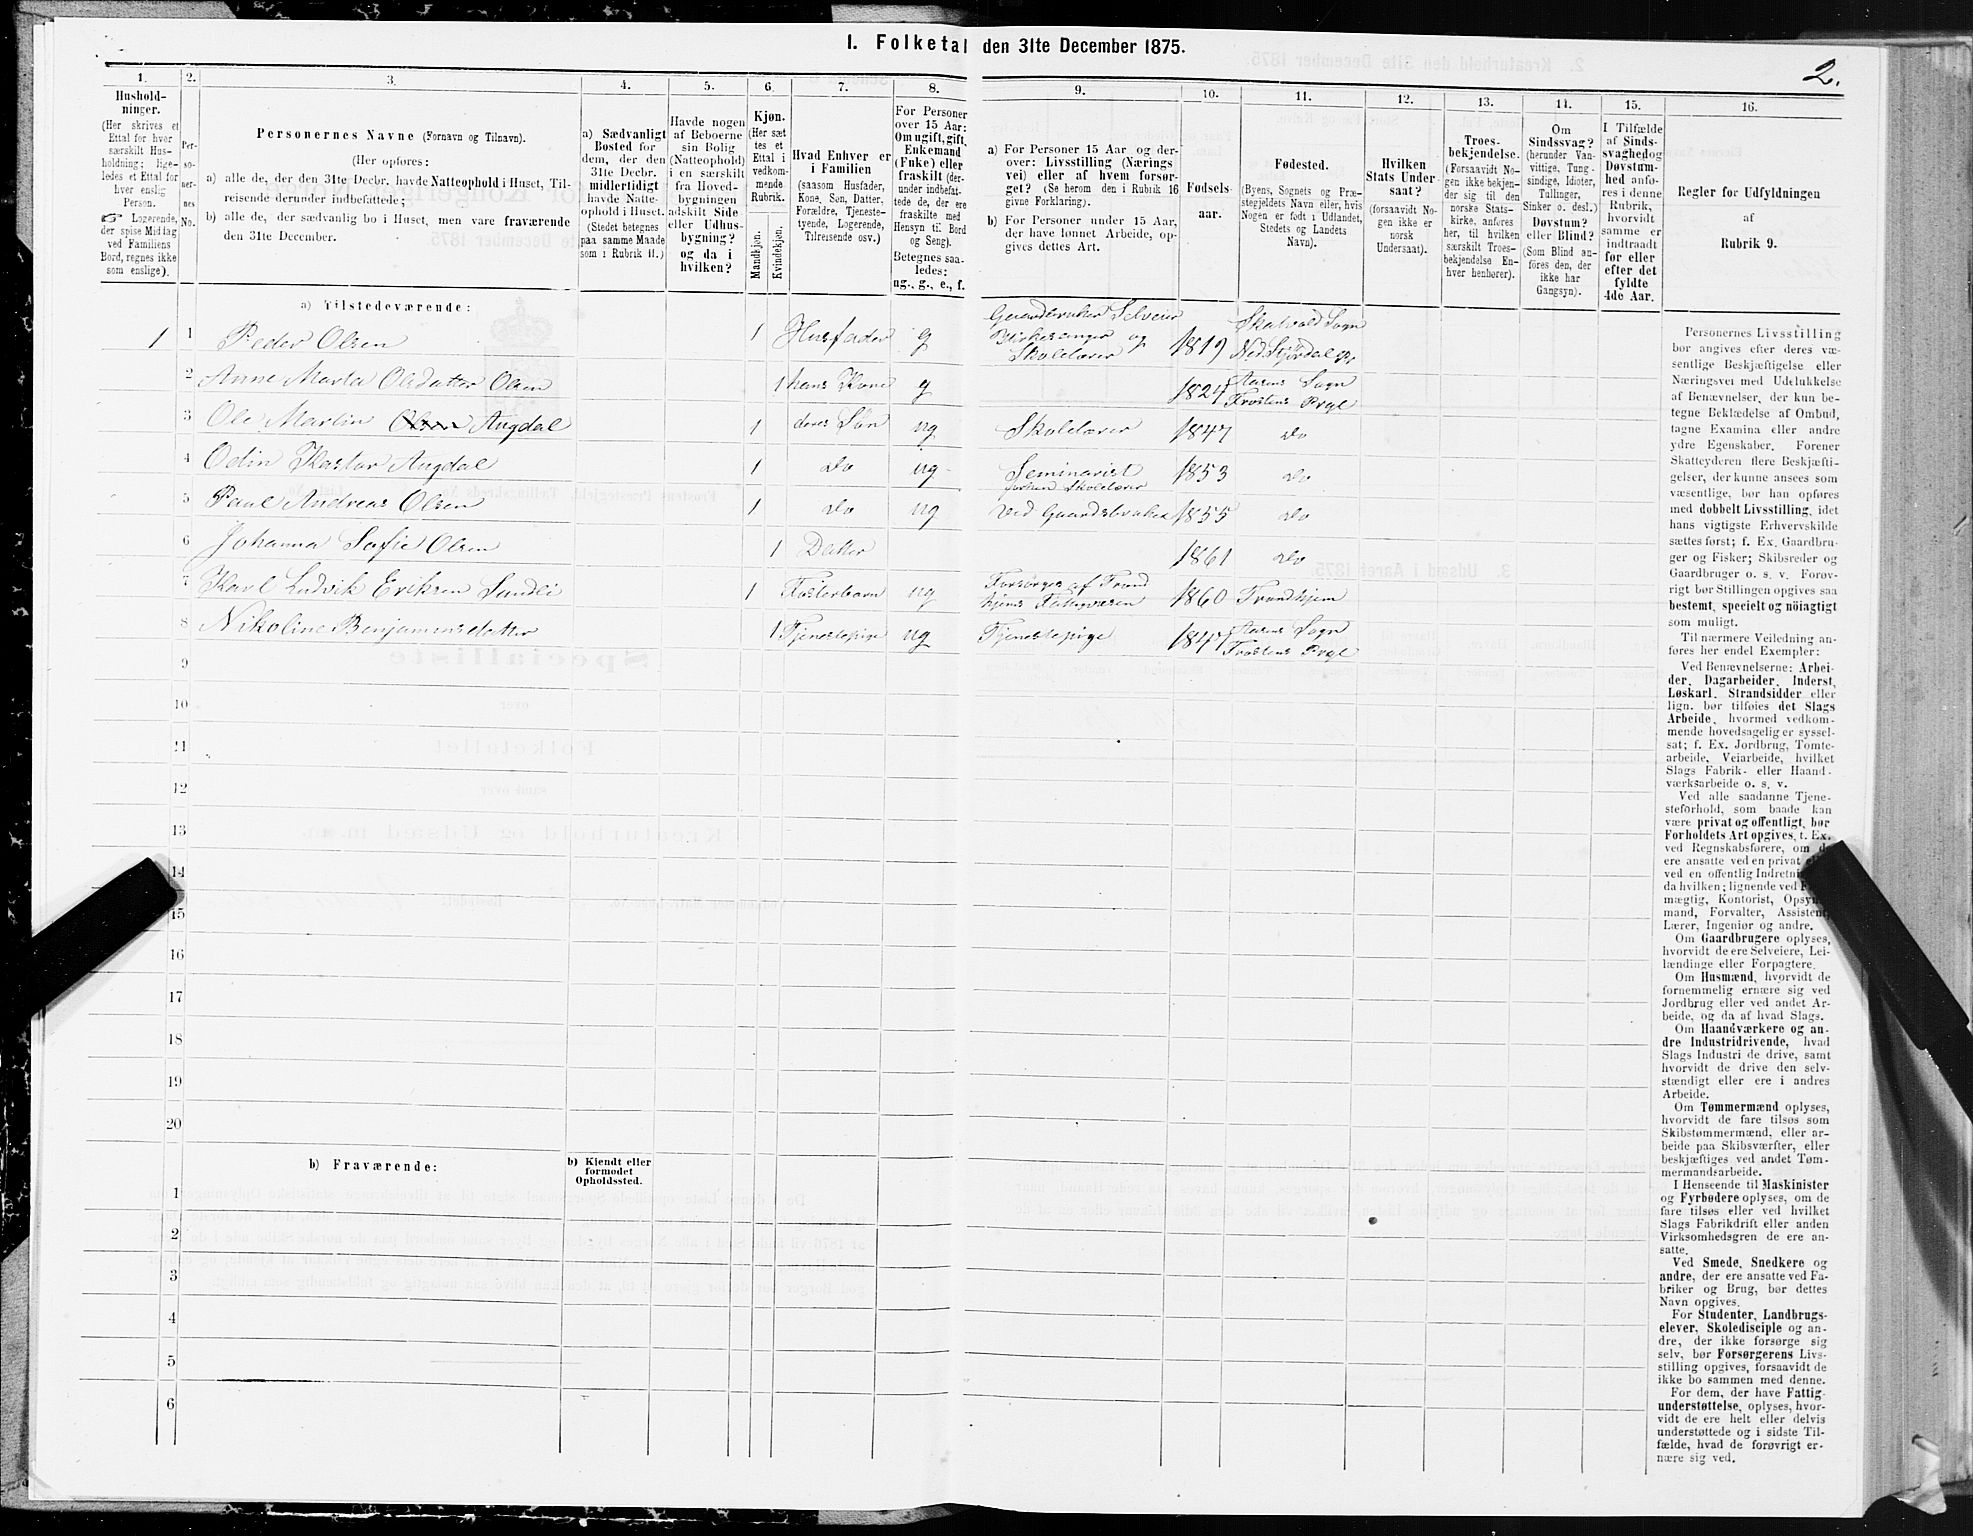 I. Folketal den 31te December 1875.
2.
1. 2. 3. 4. 5. 6. 7. 8. 9. 10. 11. 12. 13. 14. 15. 16.
Hushold-
ninger.
(Her skrives et
Ettal for hver
særskilt Hus-
holdning; lige-
ledes et Ettal for
hver enslig
Person.
☞ Logerende,
der spise Middag
ved Familiens
Bord, regnes ikke
som enslige).
Per-
so-
ner-
nes
No.
Personernes Navne (Fornavn og Tilnavn).
(Her opføres:
a) alle de, der den 31te Decbr. havde Natteophold i Huset, Til-
reisende derunder indbefattede;
b) alle de, der sædvanlig bo i Huset, men vare fraværende
den 31te December.
a) Sædvanligt
Bosted for
dem, der den
31te Decbr.
midlertidigt
havde Natte-
ophold i Huset.
(Stedet betegnes
paa samme Maade
som i Rubrik 11.)
Havde nogen
af Beboerne
sin Bolig
(Natteophold)
i en særskilt
fra Hoved-
bygningen
adskilt Side
eller Udhus-
bygning?
og da i
hvilken?
Kjøn.
(Her sæt
tes et
Ettal i
vedkom-
mende
Rubrik.
Mandkjøn.
Kvindekjøn.
Hvad Enhver er
i Familien
(saasom Husfader,
Kone, Søn, Datter,
Forældre, Tjeneste-
tyende, Logerende,
Tilreisende osv.)
For Personer
over 15 Aar:
Om ugift, gift,
Enkemand
(Enke) eller
fraskilt (der-
under indbefat-
tede de, der ere
fraskilte med
Hensyn til Bord
og Seng).
Betegnes saa-
ledes:
ug., g., e., f.
a) For Personer 15 Aar og der-
over: Livsstilling (Nærings
vei) eller af hvem forsør-
get? (Se herom den i Rubrik 16
givne Forklaring).
b) For Personer under 15 Aar,
der have lønnet Arbeide, op-
gives dettes Art.
Fødsels-
aar.
Fødested.
(Byens, Sognets og Præ-
stegjeldets Navn eller, hvis
Nogen er født i Udlandet,
Stedets og Landets
Navn).
Hvilken
Stats Under
saat?
(forsaavidt No-
gen ikke er
norsk
Undersaat).
Troes-
bekjendelse.
(Forsaavidt No-
gen ikke bekjen-
der sig til den
norske Stats-
kirke, anføres
her, til hvilken
særskilt Troes-
bekjendelse En-
hver henhører).
Om
Sindssvag?
(herunder Van-
vittige, Tung-
sindige, Idioter,
Tullinger,
Sinker o. desl.)
Døvstum?
eller Blind?
(Som Blind an-
føres den, der
ikke har
Gangsyn).
I Tilfælde
af Sinds-
svaghed og
Døvstum-
hed anfø-
res i denne
Rubrik,
hvorvidt
samme er
indtraadt
før eller
efter det
fyldte
4de Aar.
Regler for Udfyldningen
af
Rubrik 9.
a) Tilstedeværende:
1 1 Peder Olsen 1 Husfader g Gaardbruker Selveier Kirkesanger og Skolelærer 1819 Skatvold Sogn Ned. Stjørdal Pr
2 Anne Marta Olsdatter Olsen 1 hans Kone g 1824 Aasens Sogn Frostens Prgl
3 Ole Martin Olsen Augdal 1 deres Søn ug Skolelærer 1847 Do
4 Odin Kastor Augdal 1 Do ug Seminarist forhen Skolelærer 1853 Do
5 Paul Andreas Olsen 1 Do ug Ved Gaardsbruket 1855 Do
6 Johanna Sofie Olsen 1 Datter 1861 Do
7 Karl Ludvik Eriksen Sandli 1 Fosterbarn ug Forsørges af Trond hjems Fattigvæsen 1860 Trondhjem
8 Nikoline Benjaminsdatter 1 Tjenestepige ug Tjenestepige 1847 Aasens Sogn Frostens Prgl
9
10
11
12
13
14
15
16
17
18
19
20
b) Fraværende:
b) Kjendt eller
formodet
Opholdssted.
1
2
3
4
5
6
Personernes Livsstilling
bør angives efter deres væ-
sentlige Beskjæftigelse eller
Næringsvei med Udelukkelse
af Benævnelser, der kun be-
tegne Beklædelse af Ombud,
tagne Examina eller andre
ydre Egenskaber. Forener
Skatteyderen flere Beskjæfti-
gelser, der kunne ansees som
væsentlige, bør han opføres
med dobbelt Livsstilling, idet
hans vigtigste Erhvervskilde
sættes først; f. Ex. Gaardbru-
ger og Fisker; Skibsreder og
Gaardbruger o. s. v. Forøv-
rigt bør Stillingen opgives saa
bestemt, specielt og nöiagtigt
som muligt.
Til nærmere Veiledning an-
føres her endel Exempler:
Ved Benævnelserne: Arbei-
der, Dagarbeider, Inderst,
Løskarl, Strandsidder eller
lign. bør tilføies det Slags
Arbeide, hvormed vedkom-
mende hovedsagelig er syssel-
sat; f. Ex. Jordbrug, Tomte-
arbeide, Veiarbeide, hvilket
Slags Fabrik- eller Haand-
værksarbeide o. s. v.
Ved alle saadanne Tjene-
steforhold, som baade kan
være privat og offentligt, bør
Forholdets Art opgives, t. Ex.
ved Regnskabsførere, om de
ere ansatte ved en privat eller
ved en offentlig Indretning
da hvilken; lignende ved
mægtig, Kontorist, Opsyns
mand, Forvalter, Assistent,
Lærer, Ingeniør og andre.
Om Gaardbrugere oplyses,
hvorvidt de ere Selveiere, Lei-
lændinge eller Forpagtere.
Om Husmænd, hvorvidt de
fornemmelig ernære sig ved
Jordbrug eller ved andet Ar-
beide, og da af hvad Slags.
Om Haandværkere og an-
dre Industridrivende, hvad
Slags Industri de drive, samt
hvorvidt de drive den selv-
stændigt eller ere i andres
Arbeide.
Om Tømmermænd oplyses,
hvorvidt de fare tilsøs som
Skibstømmermænd, eller ar-
beide paa Skibsværfter, eller
beskjæftiges ved andet Tøm-
mermandsarbeide.
I Henseende til Maskinister
og Fyrbødere oplyses, om de
fare tilsøs eller ved hvilket
Slags Fabrikdrift eller anden
Virksomhedsgren de ere an-
satte.
Ved Smede, Snedkere og
andre, der ere ansatte ved Fa-
briker og Brug, bør dettes
Navn opgives.
For Studenter, Landbrugs-
elever, Skoledisciple og an-
dre, der ikke forsørge sig
selv, bør Forsørgerens Livs-
stilling opgives, forsaavidt de
ikke bo sammen med denne.
For dem, der have Fattig-
understøttelse, oplyses, hvor-
vidt de ere helt eller delvis
understøttede og i sidste Til-
fælde, hvad de forøvrigt er-
nære sig ved.